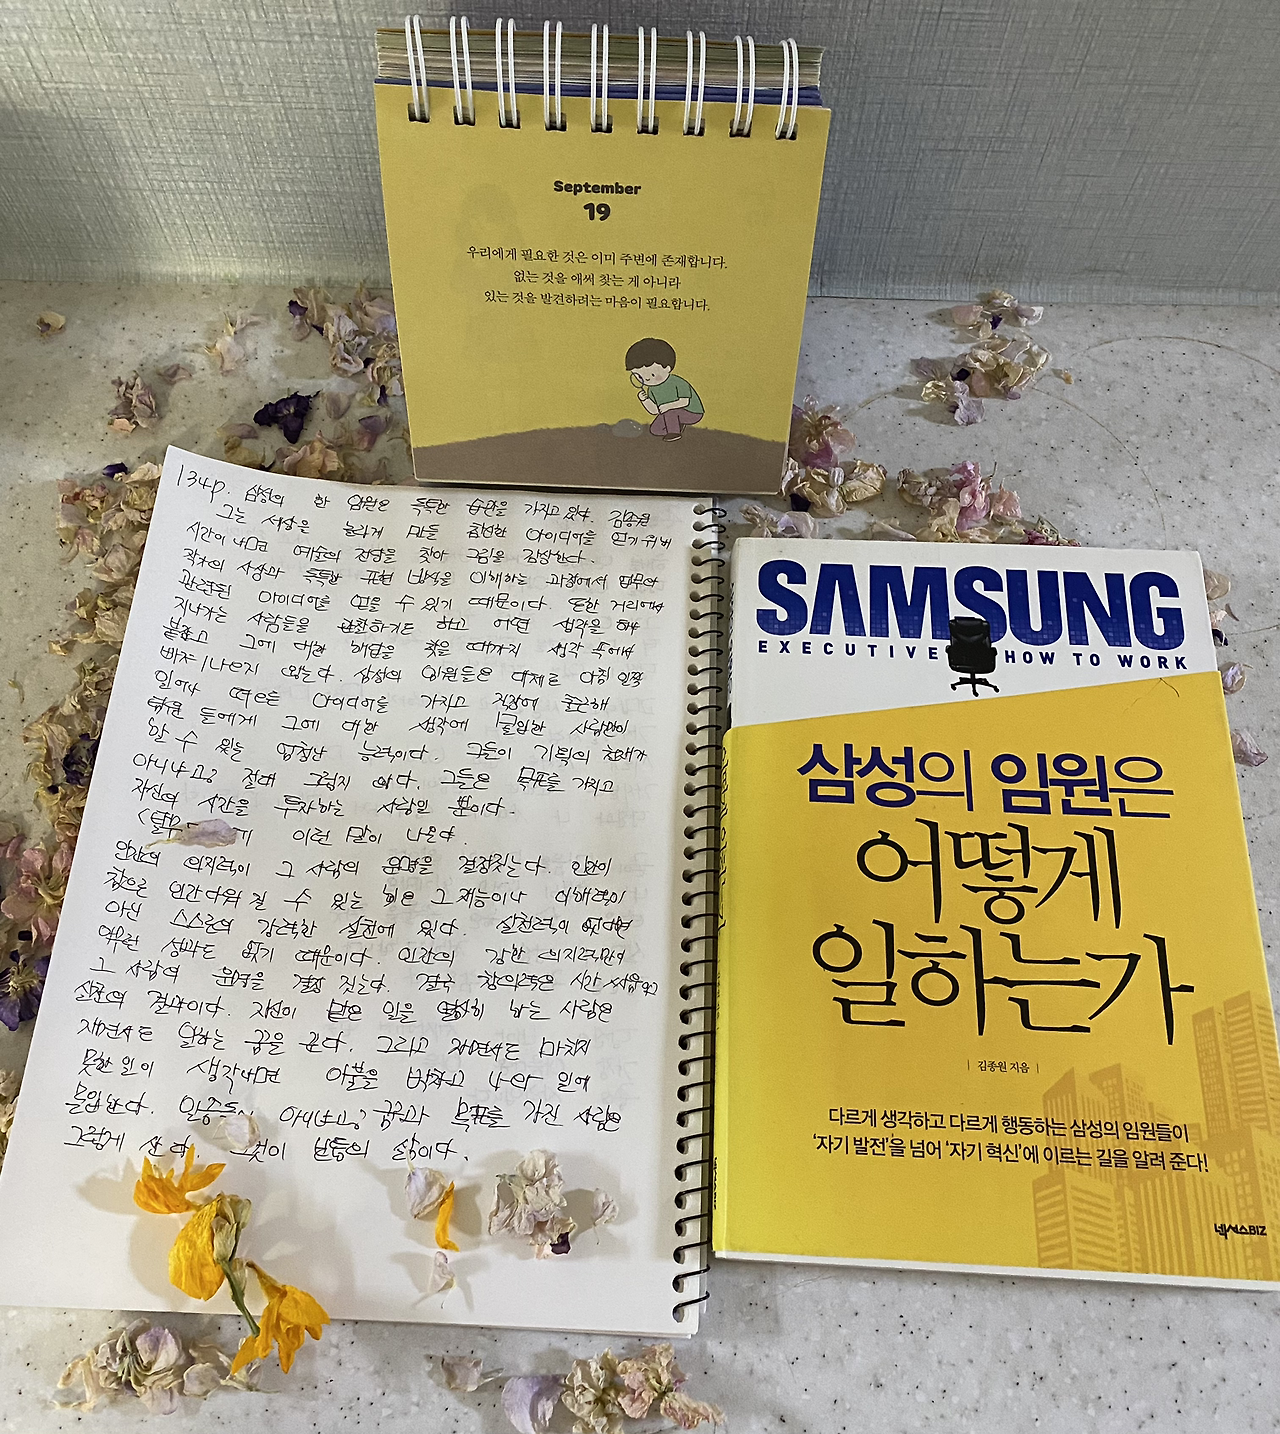 September
19
우리에게 필요한 것은 이미 주변에 존재합니다.
없는 것을 애써 찾는 게 아니라
있는 것을 발견하려는 마음이 필요합니다.
134p. 삼성의 한 임원은 독특한 습관을 가지고 있다. 김종원
그는 세상을 놀라게 만들 참신한 아이디어를 얻기 위해
시간이 나면 예술의 전당을 찾아 그림을 감상한다.
작가의 사상과 독특한 표현 방식을 이해하는 과정에서 업무와
관련된 아이디어를 얻을 수 있기 때문이다. 또한 거리에서
지나가는 사람들을 관찰하기도 하고 어떤 생각을 하며
그에 대한 해답을 찾을 때까지 생각 속에서
빠져나오지 않는다. 삼성의 임원들은 대체로 아침 일찍
일어나 떠오른 아이디어를 가지고 직장에 출근해
팀원들에게 그에 대한 생각에 몰입한 사람만이
할 수 있는 엄청난 능력이다. 그들이 기획의 천재가
아니냐고? 절대 그렇지 않다. 그들은 목표를 가지고
자신의 시간을 투자하는 사람일 뿐이다.
이런 말이 나온다.
인간의 의지력이 그 사람의 운명을 결정짓는다. 인간이
참으로 인간다워 질 수 있는 힘은 그 재능이나 이해력이
아닌 스스로의 강력한 실천에 있다. 실천력이 없다면
아무런 성과도 없기 때문이다. 인간의 강한 의지력만이
그 사람의 운명을 결정 짓는다. 결국 창의력은 시간 싸움이고
실천의 결과이다. 자신이 맡은 일을 열심히 하는 사람은
자면서도 일하는 꿈을 꾼다. 그리고 자면서도 마치지
못한 일이 생각나면 이불을 박차고 나와 일에
몰입한다. 일중독 아니냐고? 꿈과 목표를 가진 사람은
그렇게 산다. 그것이 그들의 삶이다.
SAMSUNG
EXECUTIVE HOW TO WORK
삼성의 임원은
어떻게
일하는가
| 김종원 지음 |
다르게 생각하고 다르게 행동하는 삼성의 임원들이
'자기 발전'을 넘어 '자기 혁신'에 이르는 길을 알려 준다!
넥서스BIZ